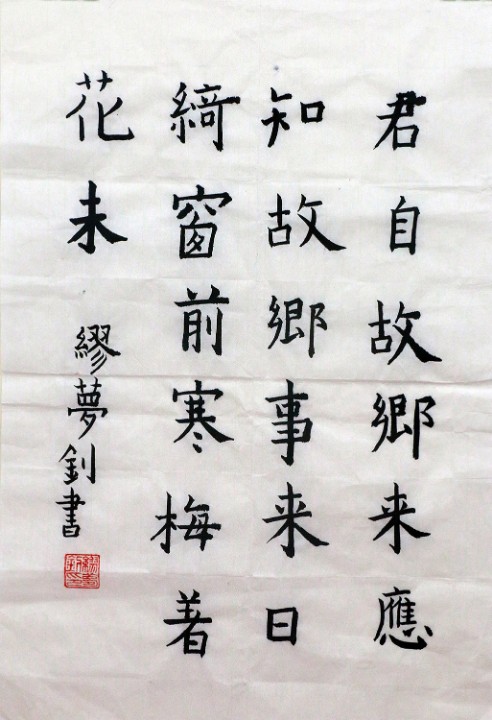 君自故鄉来應
知故鄉事来日
綺窗前寒梅著
花未
繆夢釗書